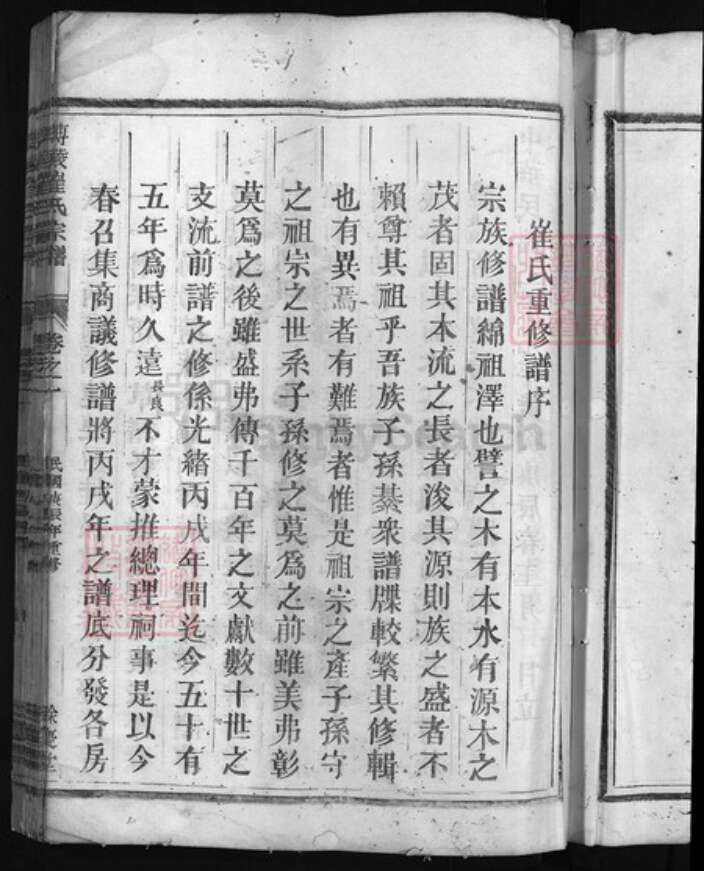 崔氏重修譜序
宗族修譜綿祖澤也譬之木有本水有源木之
茂者固其本流之長者浚其源則族之盛者不
賴尊其祖乎吾族子孫綦衆譜牒較繁其修輯
也有異焉者有難焉者惟是祖宗之產子孫守
之祖宗之世系子孫修之莫爲之前雖美弗彰
莫爲之後雖盛弗傳千百年之文獻數十世之
支流前譜之修係光緒丙戌年間迄今五十有
五年爲時久遠長良不才蒙推總理祠事是以今
春召集商議修譜將丙戌年之譜底分發各房
博陵崔氏宗譜
卷之一
民國庚辰年重修
FamilySearch